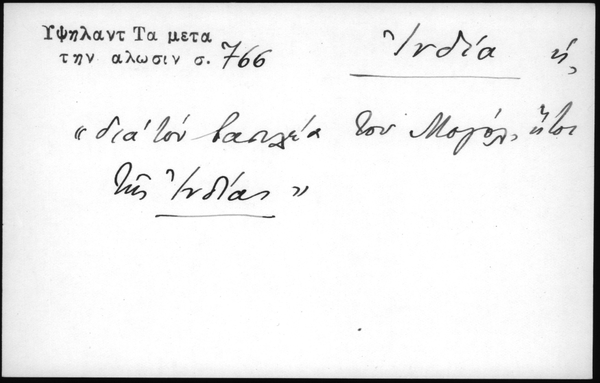 Υψηλαντ Τα μετα
την αλωσιν σ. 766
Ἰνδία ἡ,
«διὰ τὸν βασιλέα τοῦ Μογὸλ, ἤτοι
τῆς Ἰνδίας»